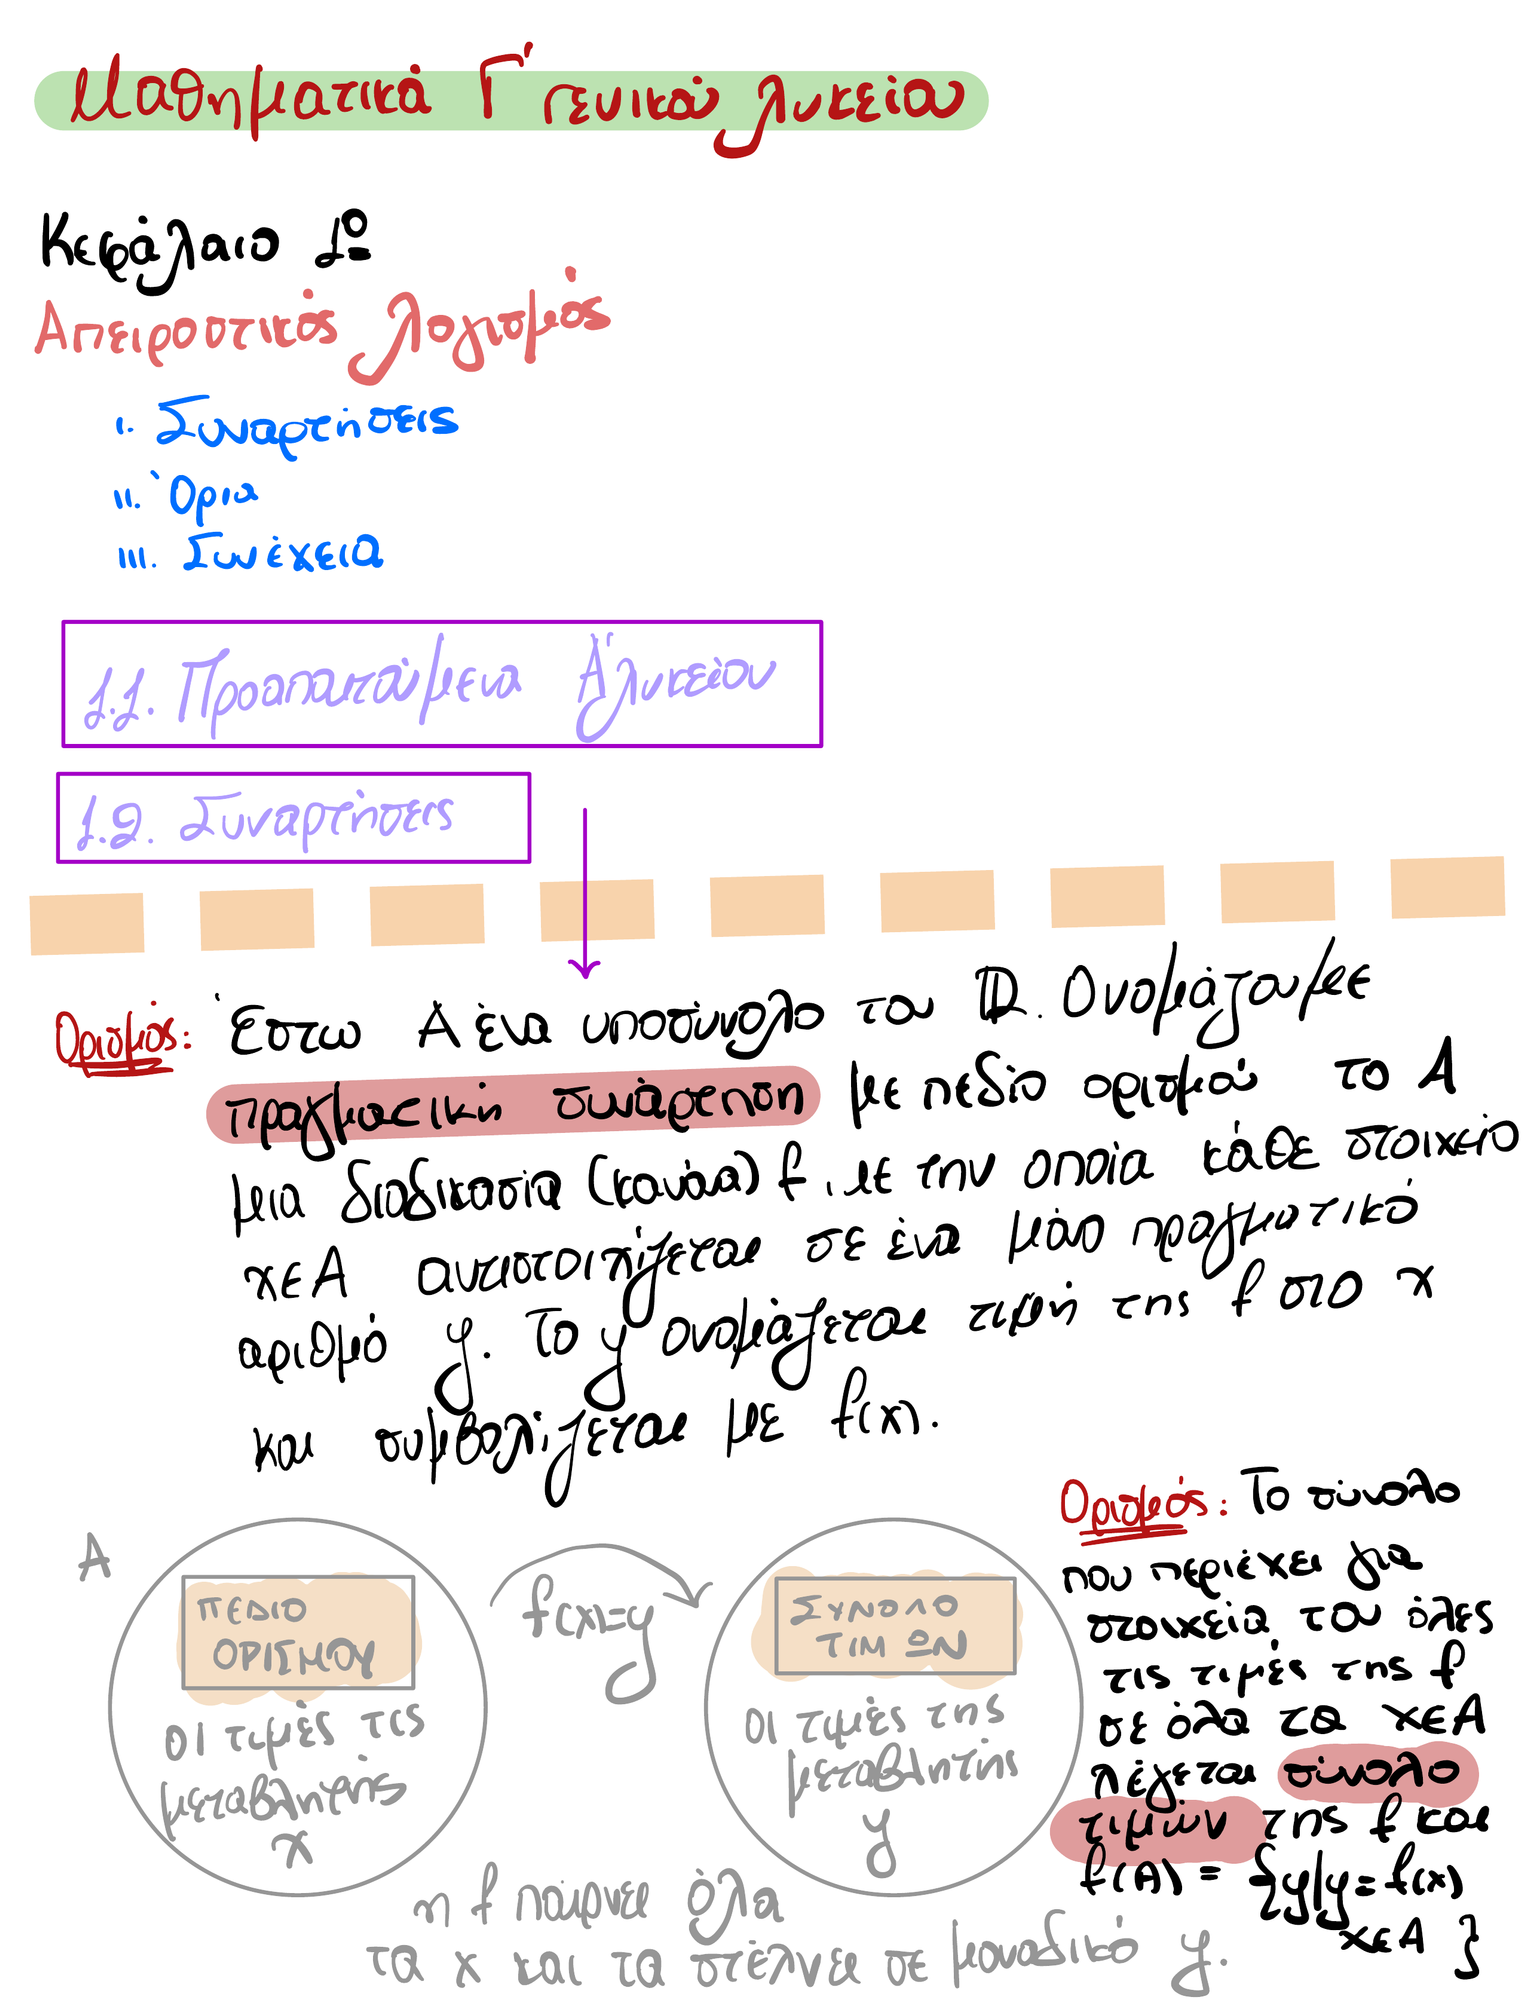 Μαθηματικά Γ' γενικού λυκείου
Κεφάλαιο 1º
Απειροστικός λογισμός
i. Συναρτήσεις
ii. Όρια
iii. Συνέχεια
1.1. Προαπαιτούμενα Α' λυκείου
1.2. Συναρτήσεις
Ορισμός: Έστω Α ένα υποσύνολο του ℝ. Ονομάζουμε
πραγματική συνάρτηση με πεδίο ορισμού το Α
μια διαδικασία (κανόνα) f, με την οποία κάθε στοιχείο
x∈A αντιστοιχίζεται σε ένα μόνο πραγματικό
αριθμό y. Το y ονομάζεται τιμή της f στο x
και συμβολίζεται με f(x).
A
ΠΕΔΙΟ
ΟΡΙΣΜΟΥ
οι τιμές τις
μεταβλητής
x
f(x)=y
ΣΥΝΟΛΟ
ΤΙΜΩΝ
οι τιμές της
μεταβλητής
y
η f παίρνει όλα
τα x και τα στέλνει σε μοναδικό y.
Ορισμός: Το σύνολο
που περιέχει για
στοιχεία του όλες
τις τιμές της f
σε όλα τα x∈A
λέγεται σύνολο
τιμών της f και
f(A) = {y|y=f(x)
x∈A }